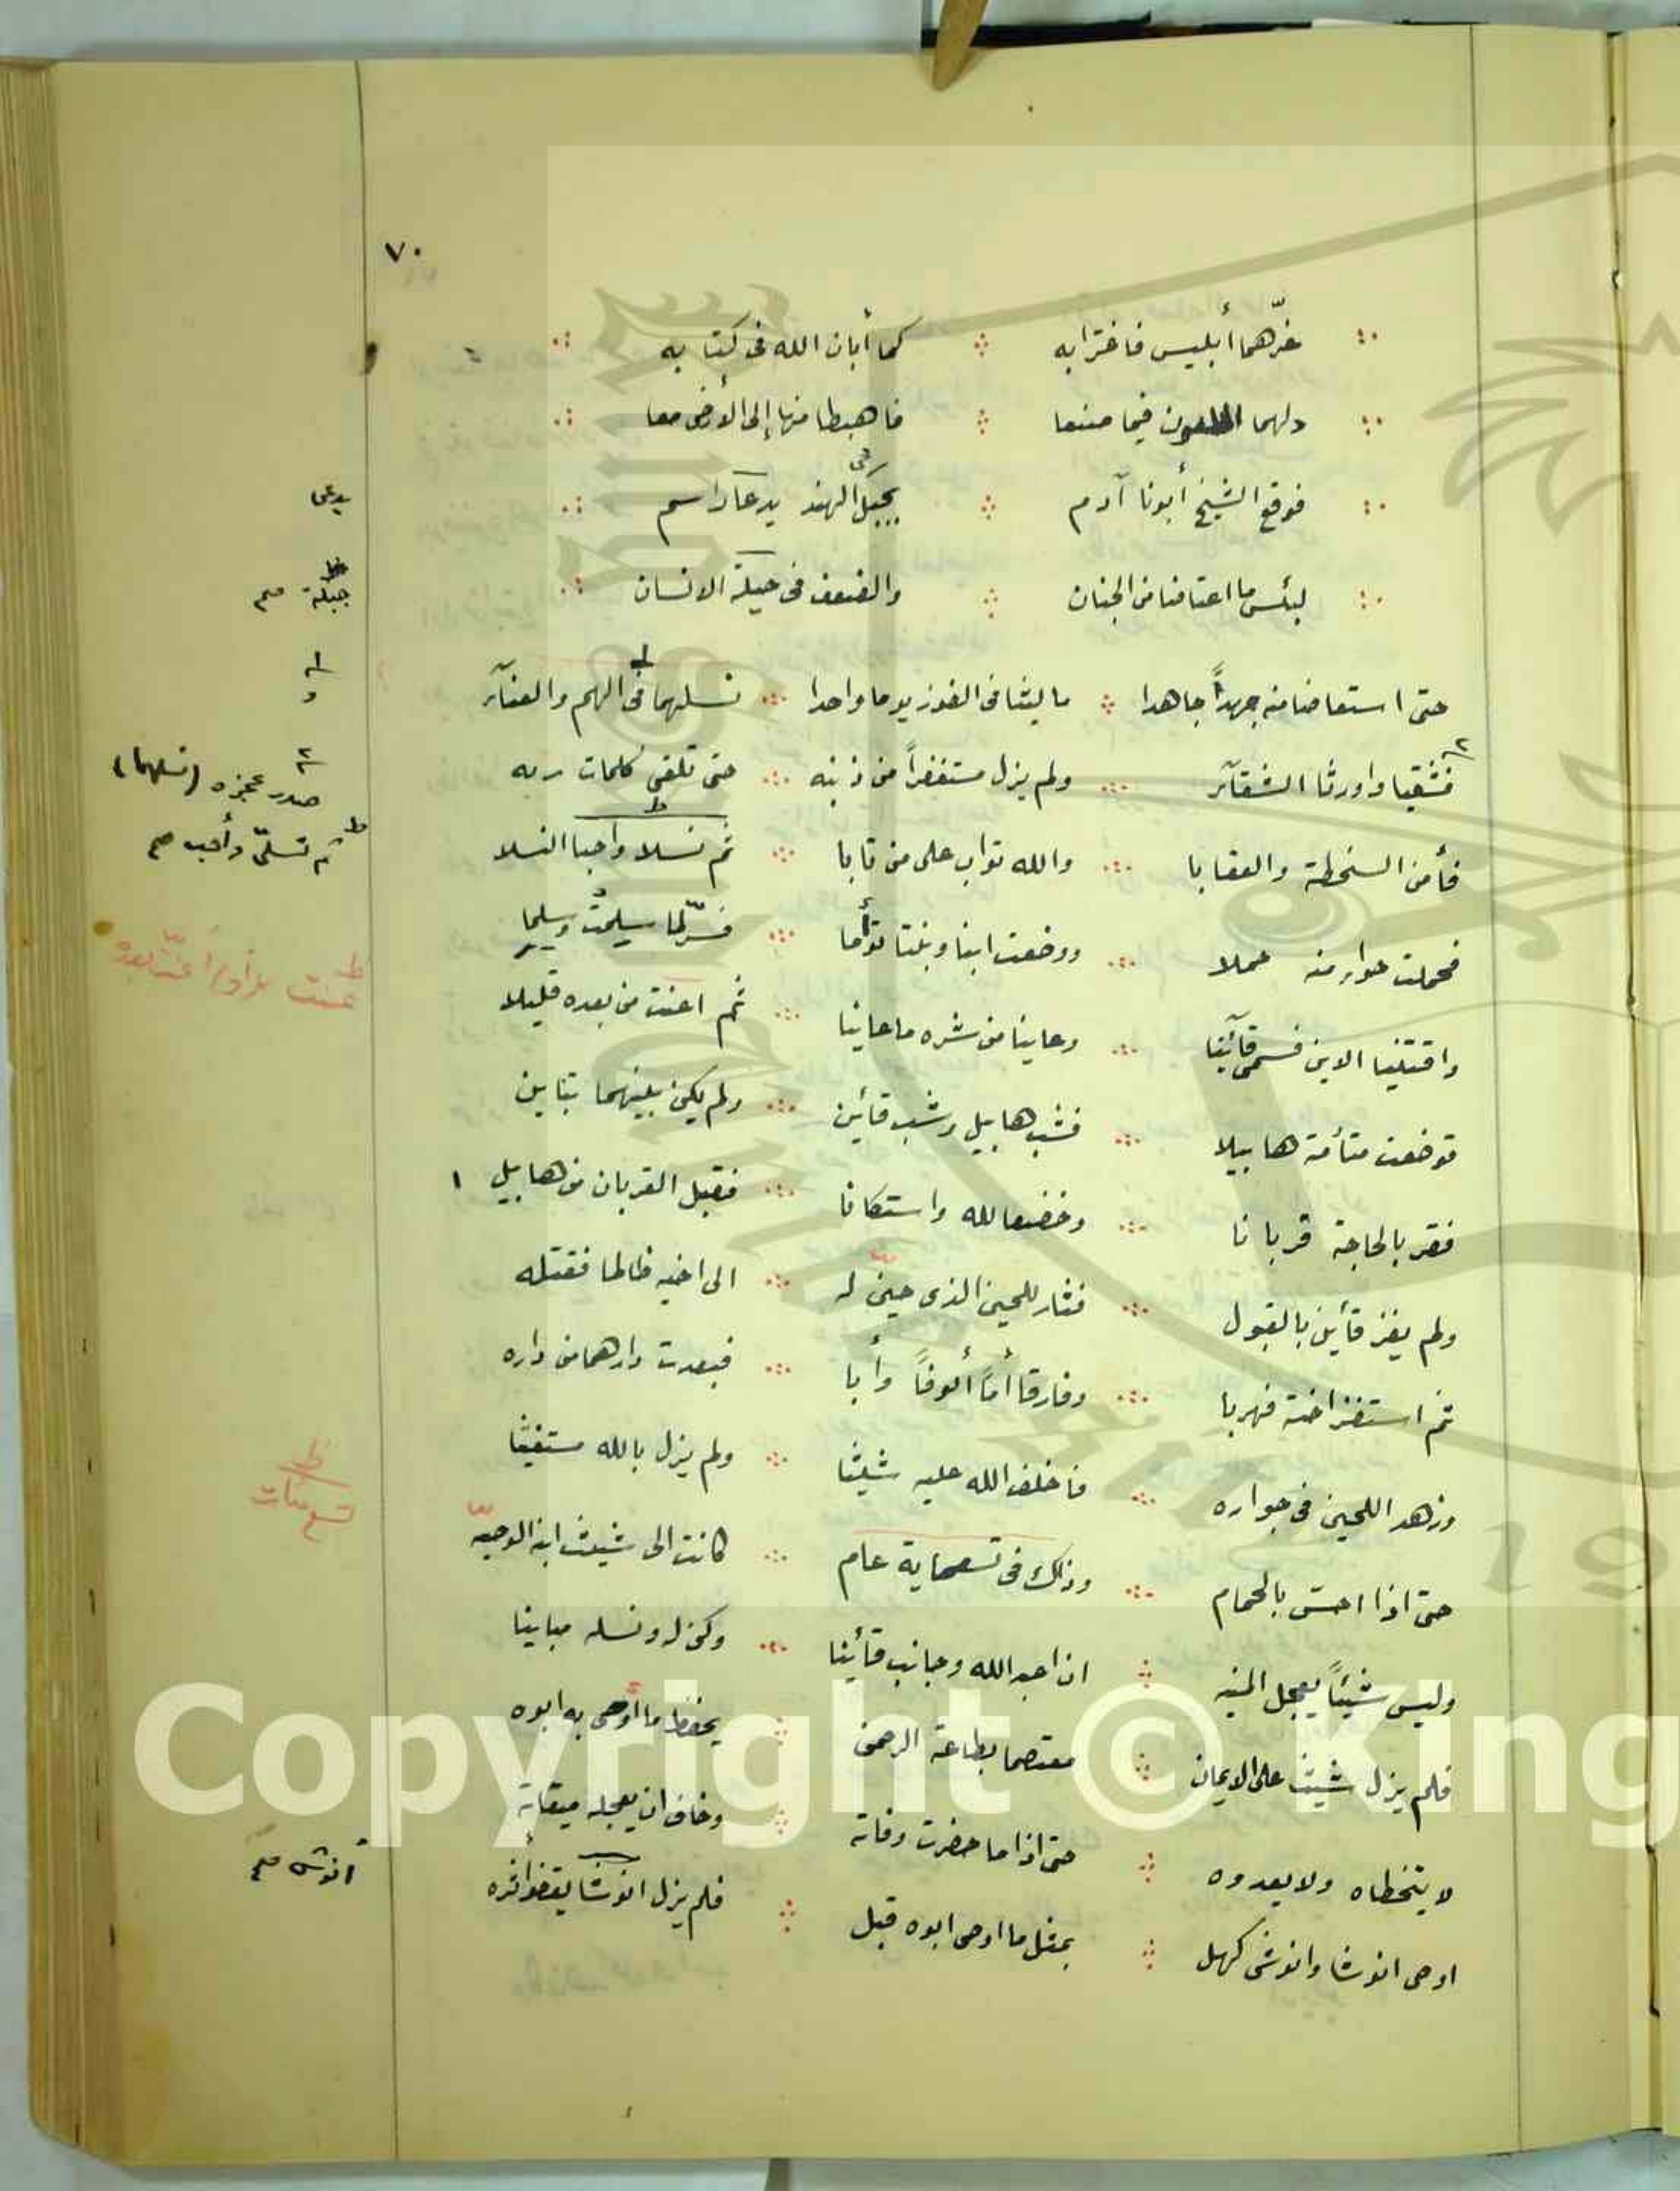 ٧٠
غرّهما أبليس فاغترا به ∴ كما أبان الله فى كتابه
دلهما الملعون فيما صنعا ∴ فاهبطا منها إلى الأرض معا
فوقع الشيخ أبونا آدم ∴ بجبل فى الهند يدعا راسم
يدعى
لبئس ما اعتاضا من الجنان ∴ والضعف فى حيلة الانسان
جبلة صح
حتى استعاضا منه جهداً جاهدا ∴ ما لبثا فى الفوز يوما واحدا ∴ نسلهما فى الهم والعنآء
فشقيا واورثا الشقآء ∴ ولم يزل مستغفراً من ذنبه ∴ حتى تلقى كلمات ربه
صدر عجزه (نسلهما)
فأمن السخطة والعقابا ∴ والله تواب على من تابا ∴ ثم نسلا واحبا النسلا
ثم تسلّى وأحب صح
فحملت حواء منه حملا ∴ ووضعت ابنا وبنتا توأما ∴ فسرّ لما سلمت وسلما
واقتنيا الابن فسمى قائينا ∴ وعاينا من شره ما عاينا ∴ ثم اغنت من بعده قليلا
فوضعت متأمة هابيلا ∴ فشب هابيل وشب قائين ∴ ولم يكن بينهما تباين
فقربا لحاجة قربانا ∴ وخضعا لله واستكانا ∴ فقبل القربان من هابيل ١
ولم يفز قأين بالقبول ∴ فثار للحين الذى حين له ∴ الى اخيه ظالما فقتله
ثم استفز اخته فهربا ∴ وفارقا أمّاً ألوفاً وأبا ∴ فبعدت دارهما من داره
وزهد اللحين فى جواره ∴ فاخلف الله عليه شيثا ∴ ولم يزل بالله مستغيثا
حتى اذا احس بالحمام ∴ وذلك فى تسعماية عام ∴ كانت الى شيث ابنه الوصيه
تسع مئات
وليس شيئاً يعجل المنيه ∴ ان اعبد الله وجانب قأينا ∴ وكن له ونسله مباينا
فلم يزل شيث على الايمان ∴ معتصما بطاعة الرحمن ∴ يحفظ ما أوصى به ابوه
لا يتخطاه ولا يعدوه ∴ حتى اذا ما حضرت وفاته ∴ وخاف ان يعجله ميقاته
اوصى انوشا وانوشى كهل ∴ بمثل ما اوصى ابوه قبل ∴ فلم يزل انوشا يقفو أثره
أنوش صح
Copyright © King